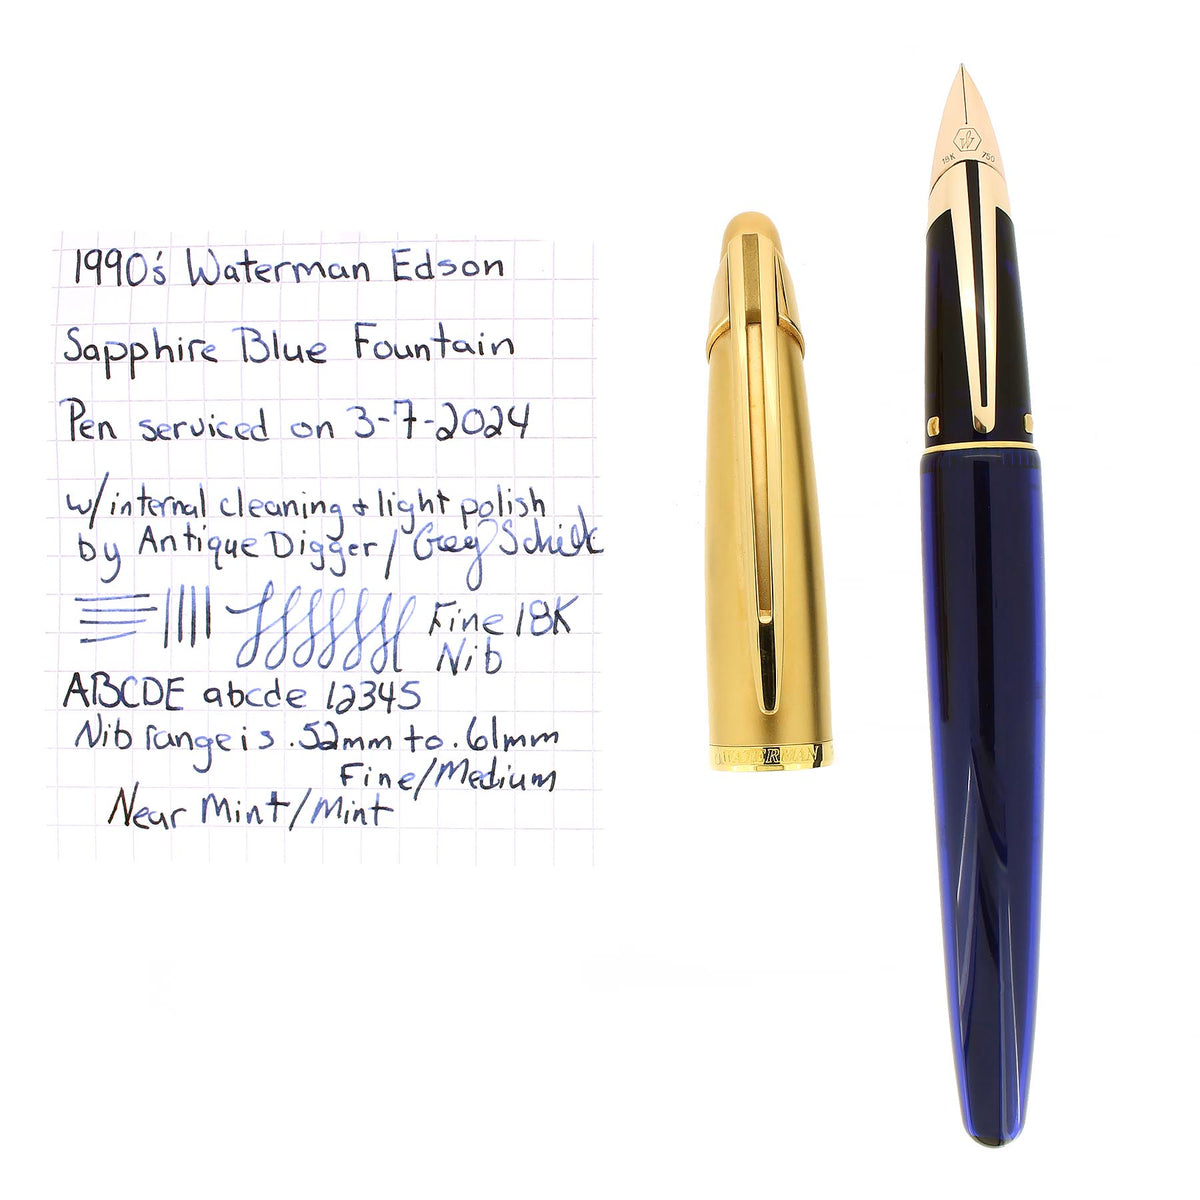 1990's Waterman Edson
Sapphire Blue Fountain
Pen serviced on 3-7-2024
w/internal cleaning + light polish
by Antique Digger/Greg
Fine 18K
Nib
ABCDE abcde 12345
Nib range is .52mm to .61mm
Fine/Medium
Near Mint/Mint
18K 750
WATERMAN